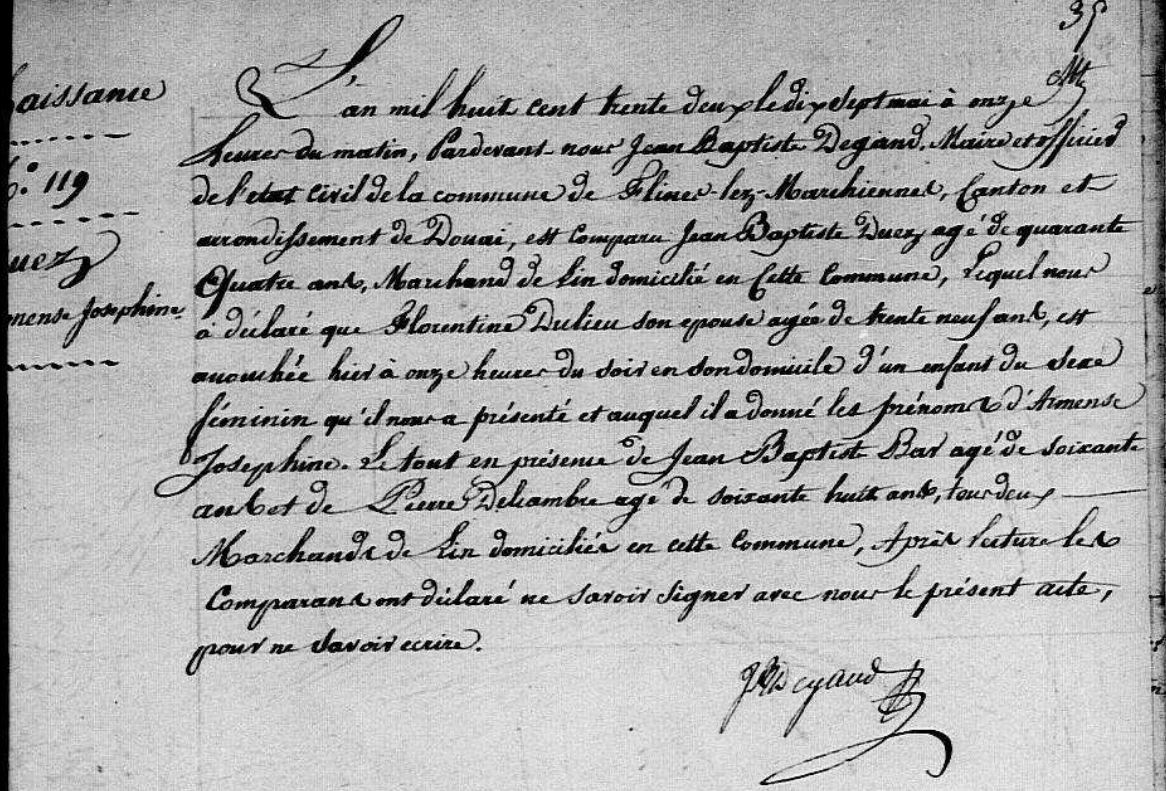 35
aissance
L'an mil huit cent trente deux le dix sept mai à onze
heures du matin, Pardevant nous Jean Baptiste Degand, Maire et officier
o. 119
de l'etat civil de la commune de Flines-lez-Marchiennes, Canton et
arrondissement de Douai, est comparu Jean Baptiste Duez, agé de quarante
uez
Quatre ans, Marchand de Lin domicilié en Cette Commune, Lequel nous
mense Josephine.
à déclaré que Florentine Dulieu son epouse agée de trente neuf ans, est
accouchée hier à onze heures du soir en son domicile d'un enfant du Sexe
féminin qu'il nous a présenté et auquel il a donné les prénoms d'Armense
Josephine. Le tout en présence de Jean Baptiste Bar agé de soixante
ans et de Pierre Delcambre agé de soixante huit ans, tous deux
Marchands de Lin domiciliés en cette Commune, Après lecture les
Comparans ont déclaré ne savoir signer avec nous le présent acte,
pour ne savoir ecrire.
JB Degand